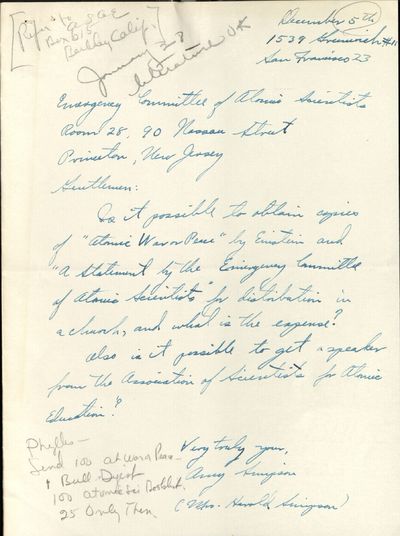 [Refer to
A S A E
Box 615
Berkley Calif.]
January 23
literature OK
December 5th
1539 Greenwich #11
San Francisco 23
Emergency Committee of Atomic Scientists
Room 28, 90 Nassau Street
Princeton, New Jersey
Gentlemen:
Is it possible to obtain copies
of "Atomic War or Peace" by Einstein and
"A Statement by the Emergency Committee
of Atomic Scientists" for distribution in
a church, and what is the expense?
Also is it possible to get a speaker
from the Association of Scientists for Atomic
Education?
Very truly yours,
Amy Simpson
(Mrs. Harold Simpson)
Phyllis —
Send 100 at War or Peace
+ Bull Digest
100 atomic Sci Booklet
25 Only Then